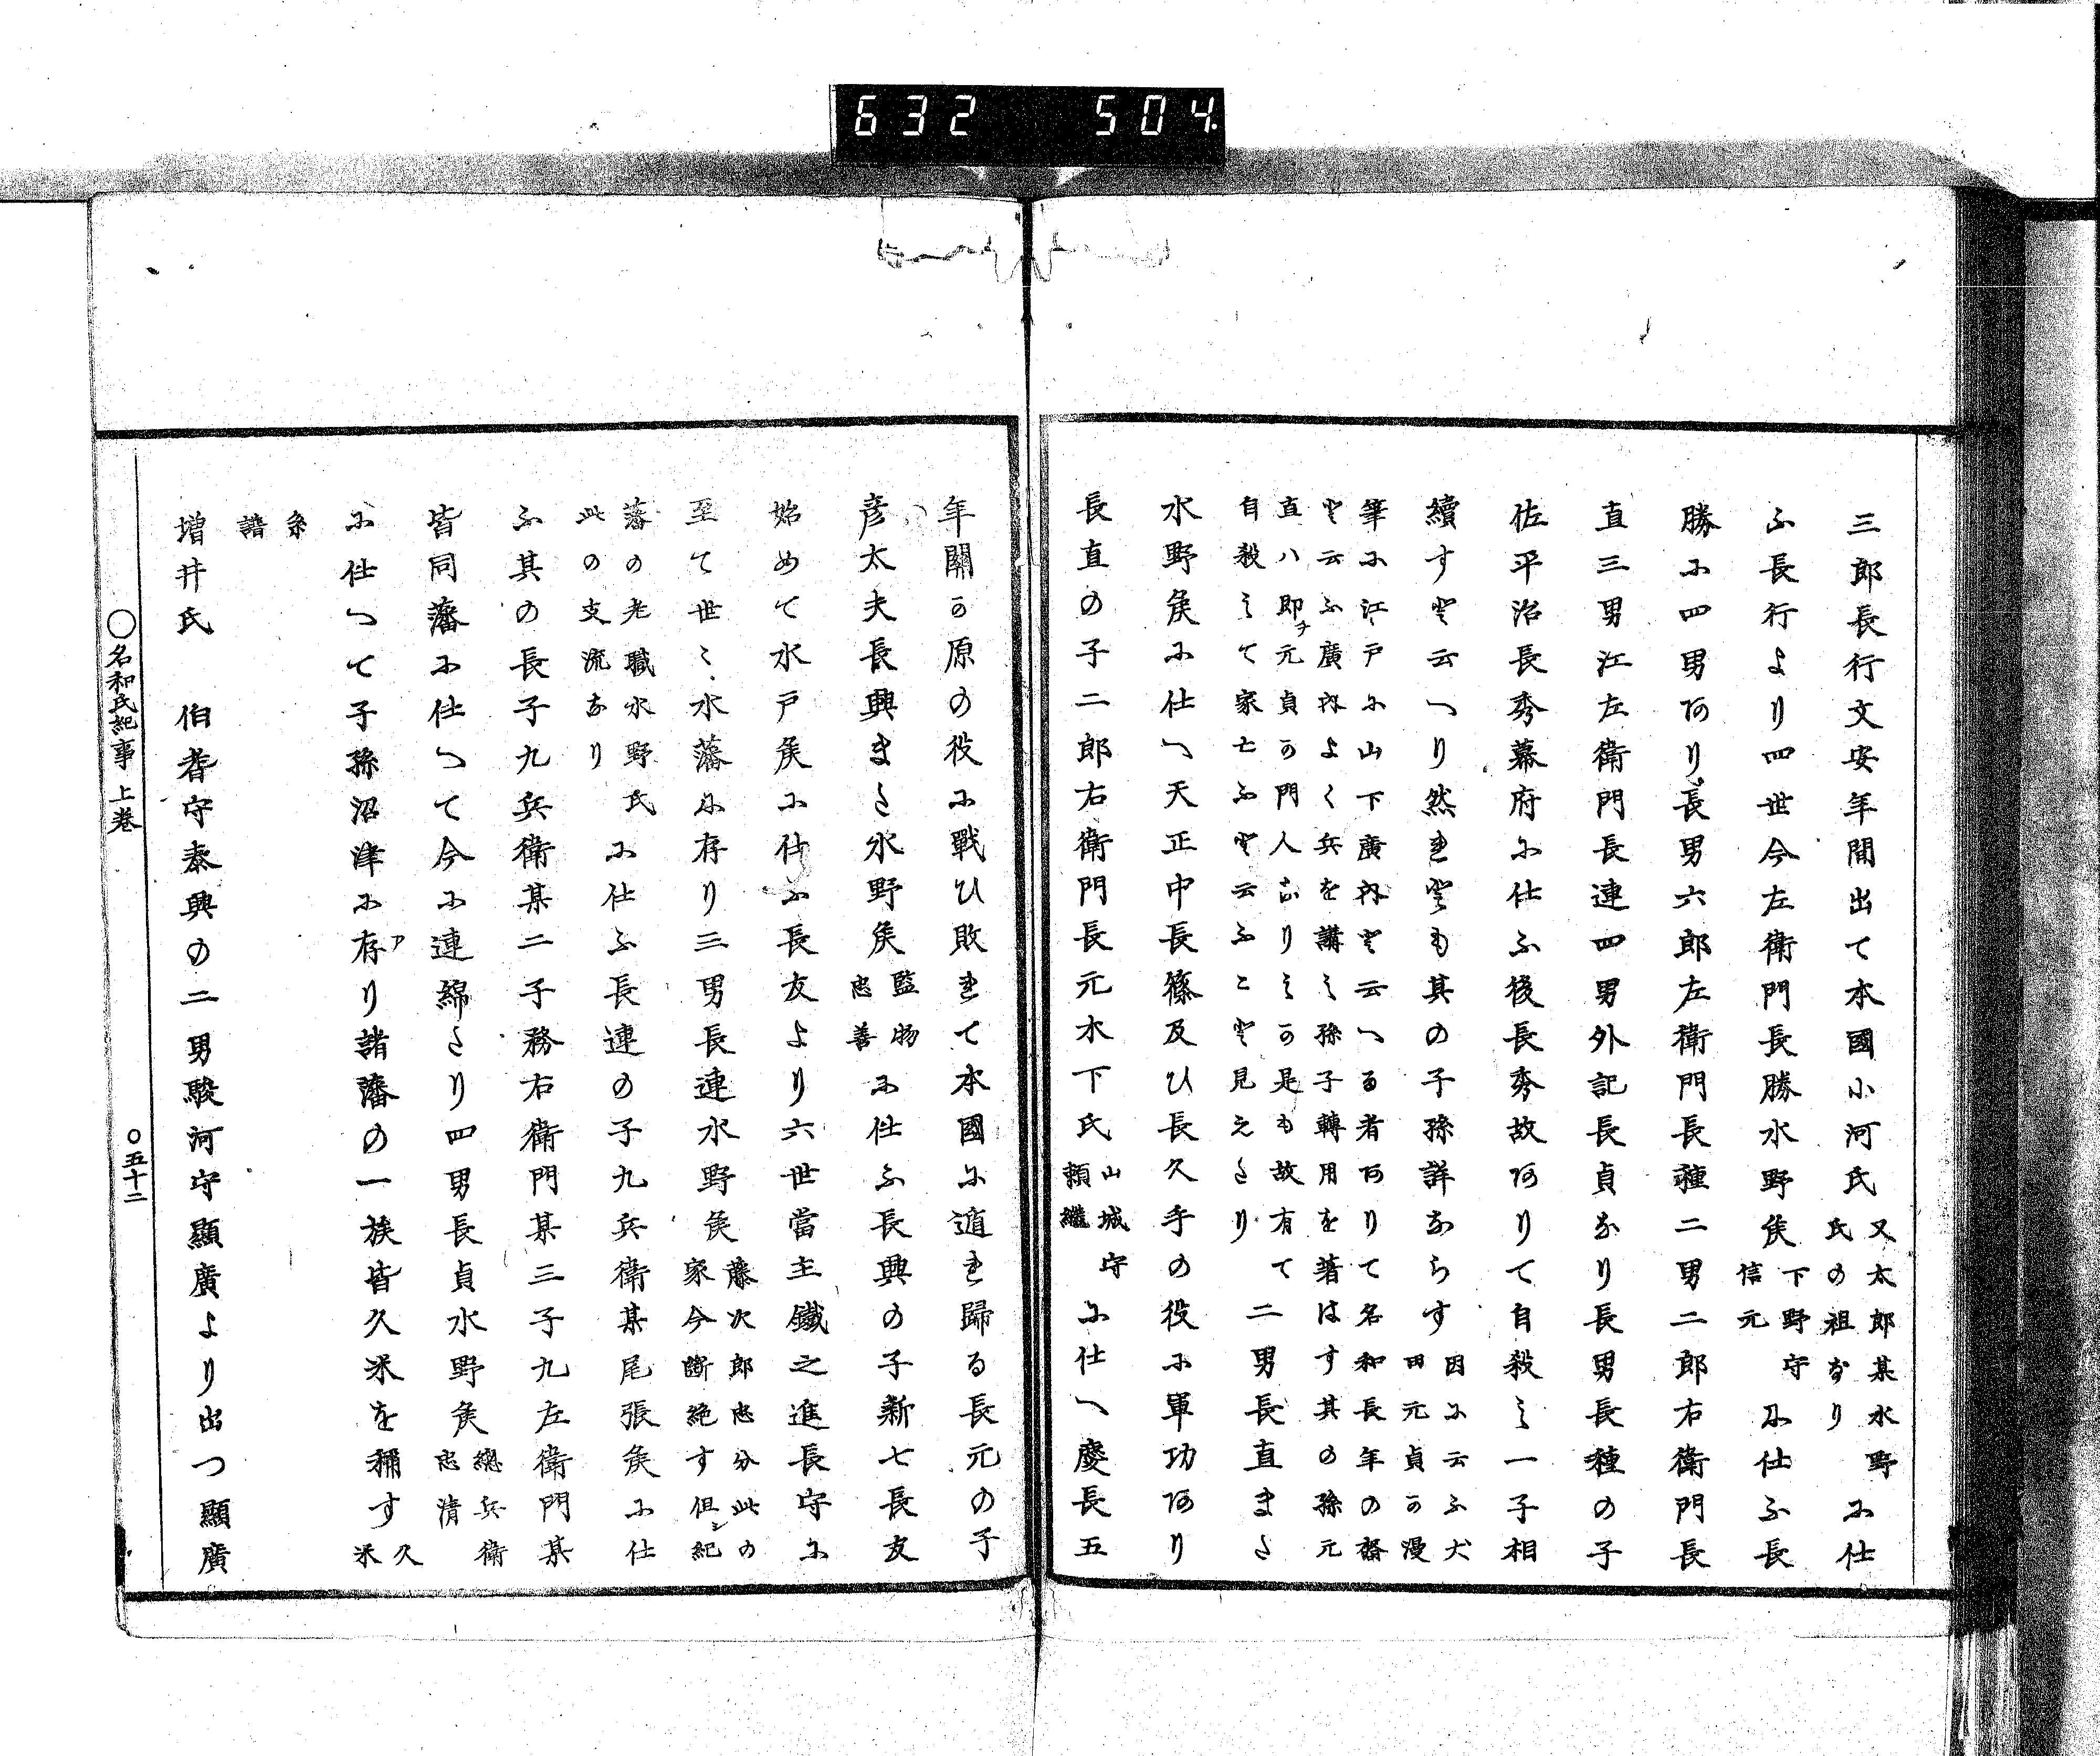 632 504
三郎長行文安年間出て本國小河氏又太郎某水野氏の祖なりに仕
ふ長行より四世今左衛門長勝水野矦下野守信元に仕ふ長
勝に四男あり長男六郎左衛門長種二男二郎右衛門長
直三男江左衛門長連四男外記長貞なり長男長種の子
佐平治長秀幕府に仕ふ後長秀故ありて自殺し一子相
續すと云へり然れとも其の子孫詳ならす因に云ふ犬田元貞の漫
筆に江戸に山下廣内と云へる者ありて名和長年の裔
と云ふ廣内よく兵を講し孫子轉用を著はす其の孫元
直ハ即チ元貞の門人なりしか是も故有て
自殺して家亡ふと云ふこと見えたり二男長直また
水野矦に仕へ天正中長篠及ひ長久手の役に軍功あり
長直の子二郎右衛門長元水下氏山城守頼繼に仕へ慶長五
年關か原の役に戰ひ敗れて本國に遁れ歸る長元の子
彦太夫長興また水野矦監物忠善に仕ふ長興の子新七長友
始めて水戸矦に仕ふ長友より六世當主鐵之進長守に
至て世々水藩に存り三男長連水野矦藤次郎忠分此の家今斷絶す但シ紀
藩の老職水野氏此の支流なりに仕ふ長連の子九兵衛某尾張矦に仕
ふ其の長子九兵衛某二子務右衛門某三子九左衛門某
皆同藩に仕へて今に連綿たり四男長貞水野矦總兵衛忠清
に仕へて子孫沼津に存ア
り諸藩の一族皆久米を稱す久米
系譜
増井氏 伯耆守泰興の二男駿河守顯廣より出つ顯廣
〇名和氏紀事 上巻 〇五十二